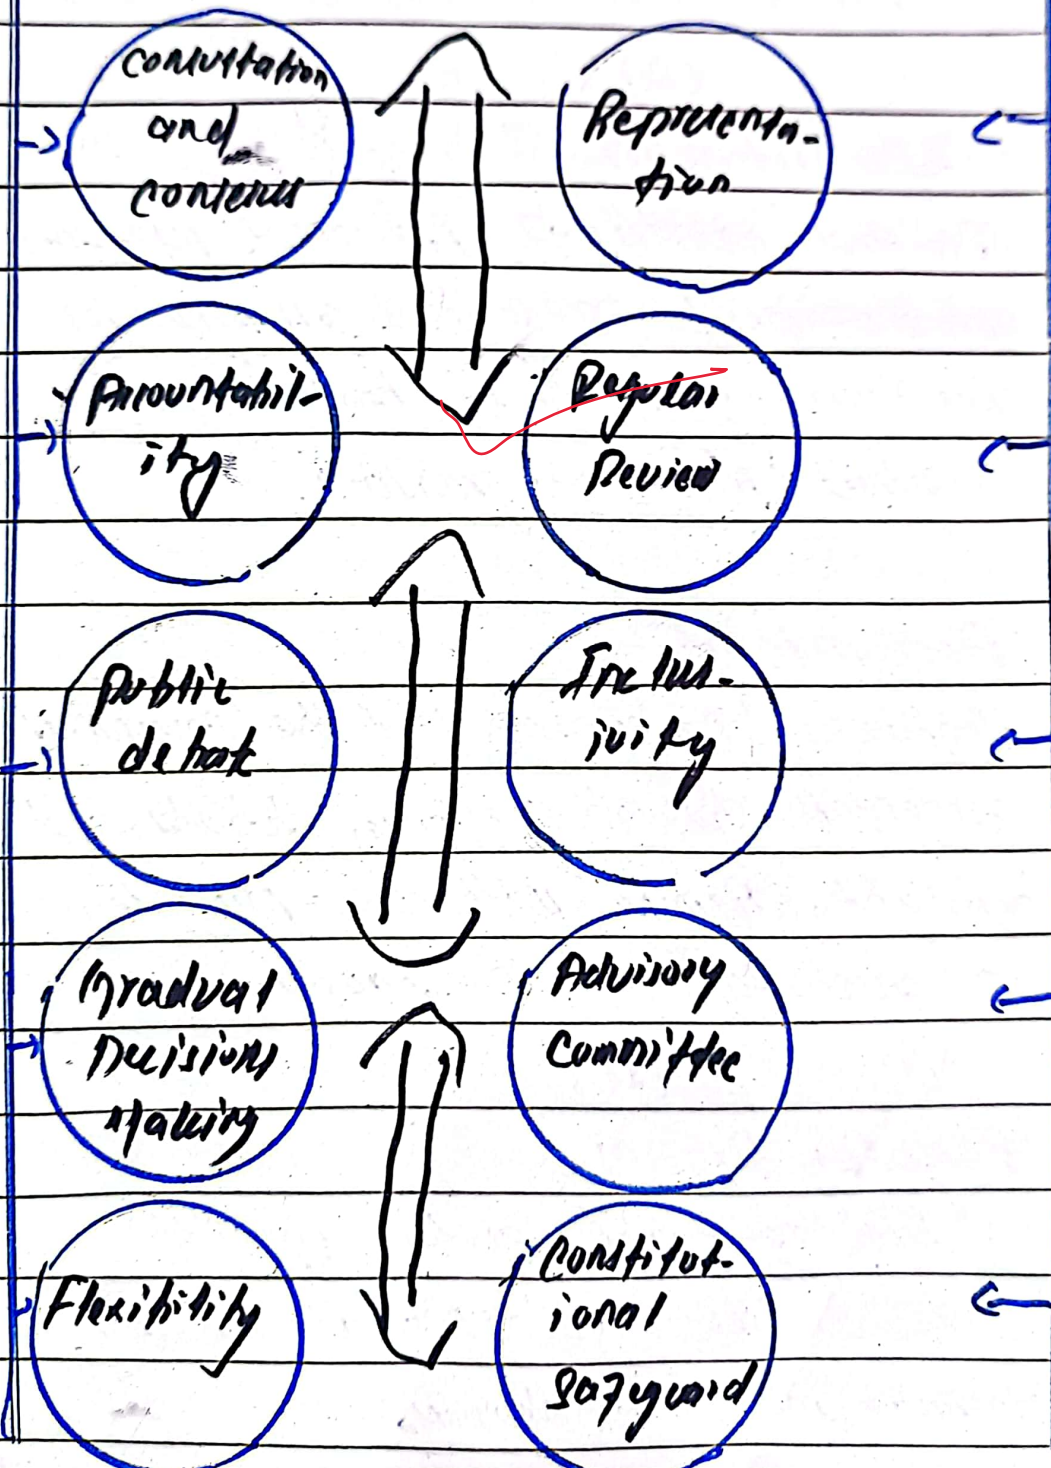 Consultation
and
consensus
Representa-
tion
Accountabil-
ity
Regular
Review
Public
debat
Inclus-
ivity
Gradual
Decisions
Making
Advisory
Committee
Flexibility
Constitut-
ional
Safeguard